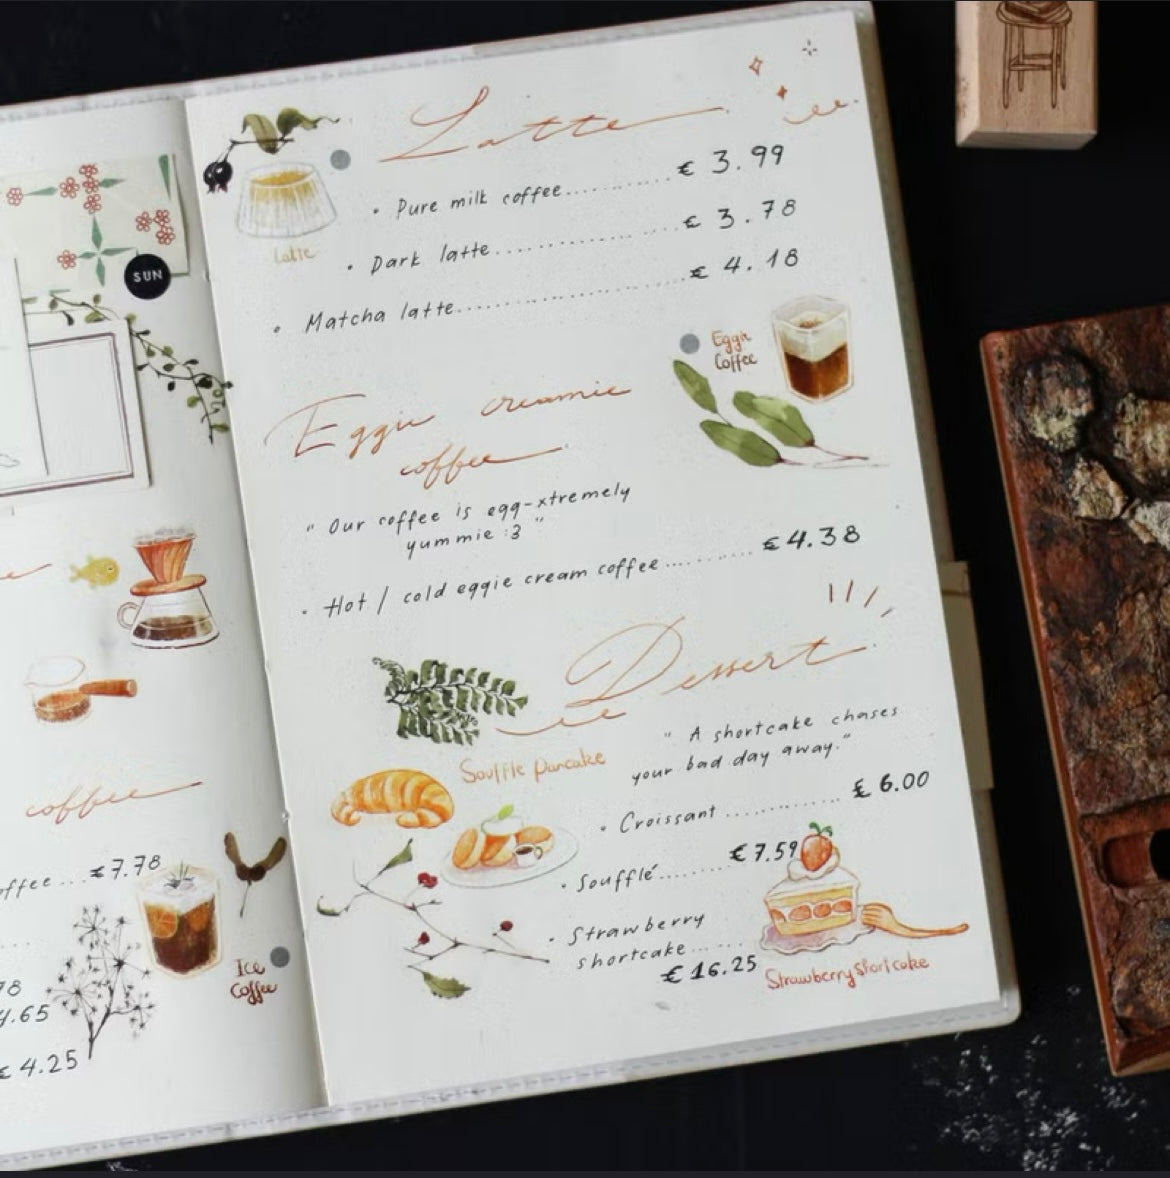 SUN
coffee
offee....€7.78
78
4.65
€4.25
Ice
Coffee
Latte
Latte
• Pure milk coffee............€ 3.99
• Dark latte....................€ 3.78
• Matcha latte.........................€ 4.18
Eggie
Coffee
Eggie creamie
coffee
" Our coffee is egg-xtremely
yummie :3 "
• Hot / cold eggie cream coffee............€4.38
Dessert
" A shortcake chases
your bad day away."
Souffle pancake
• Croissant ..............€ 6.00
• Soufflé...........€ 7.59
• Strawberry
shortcake........
€ 16.25
Strawberry Shortcake